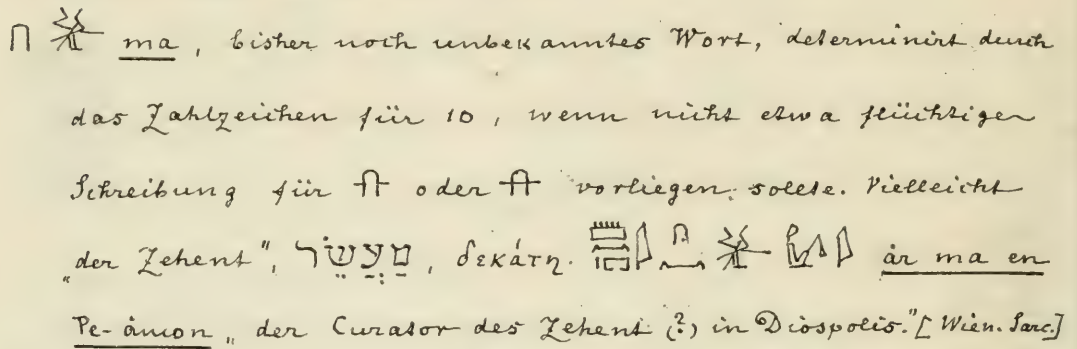 ma, bisher noch unbekanntes Wort, determinirt durch
das Zahlzeichen für 10, wenn nicht etwa flüchtige
Schreibung für oder vorliegen sollte. Vielleicht
„der Zehent", מַעֲשֵׂר, δεκάτη. ȧr ma en
Pe-ȧmon „der Curator des Zehent (?) in Diospolis." [Wien. Sarc.]